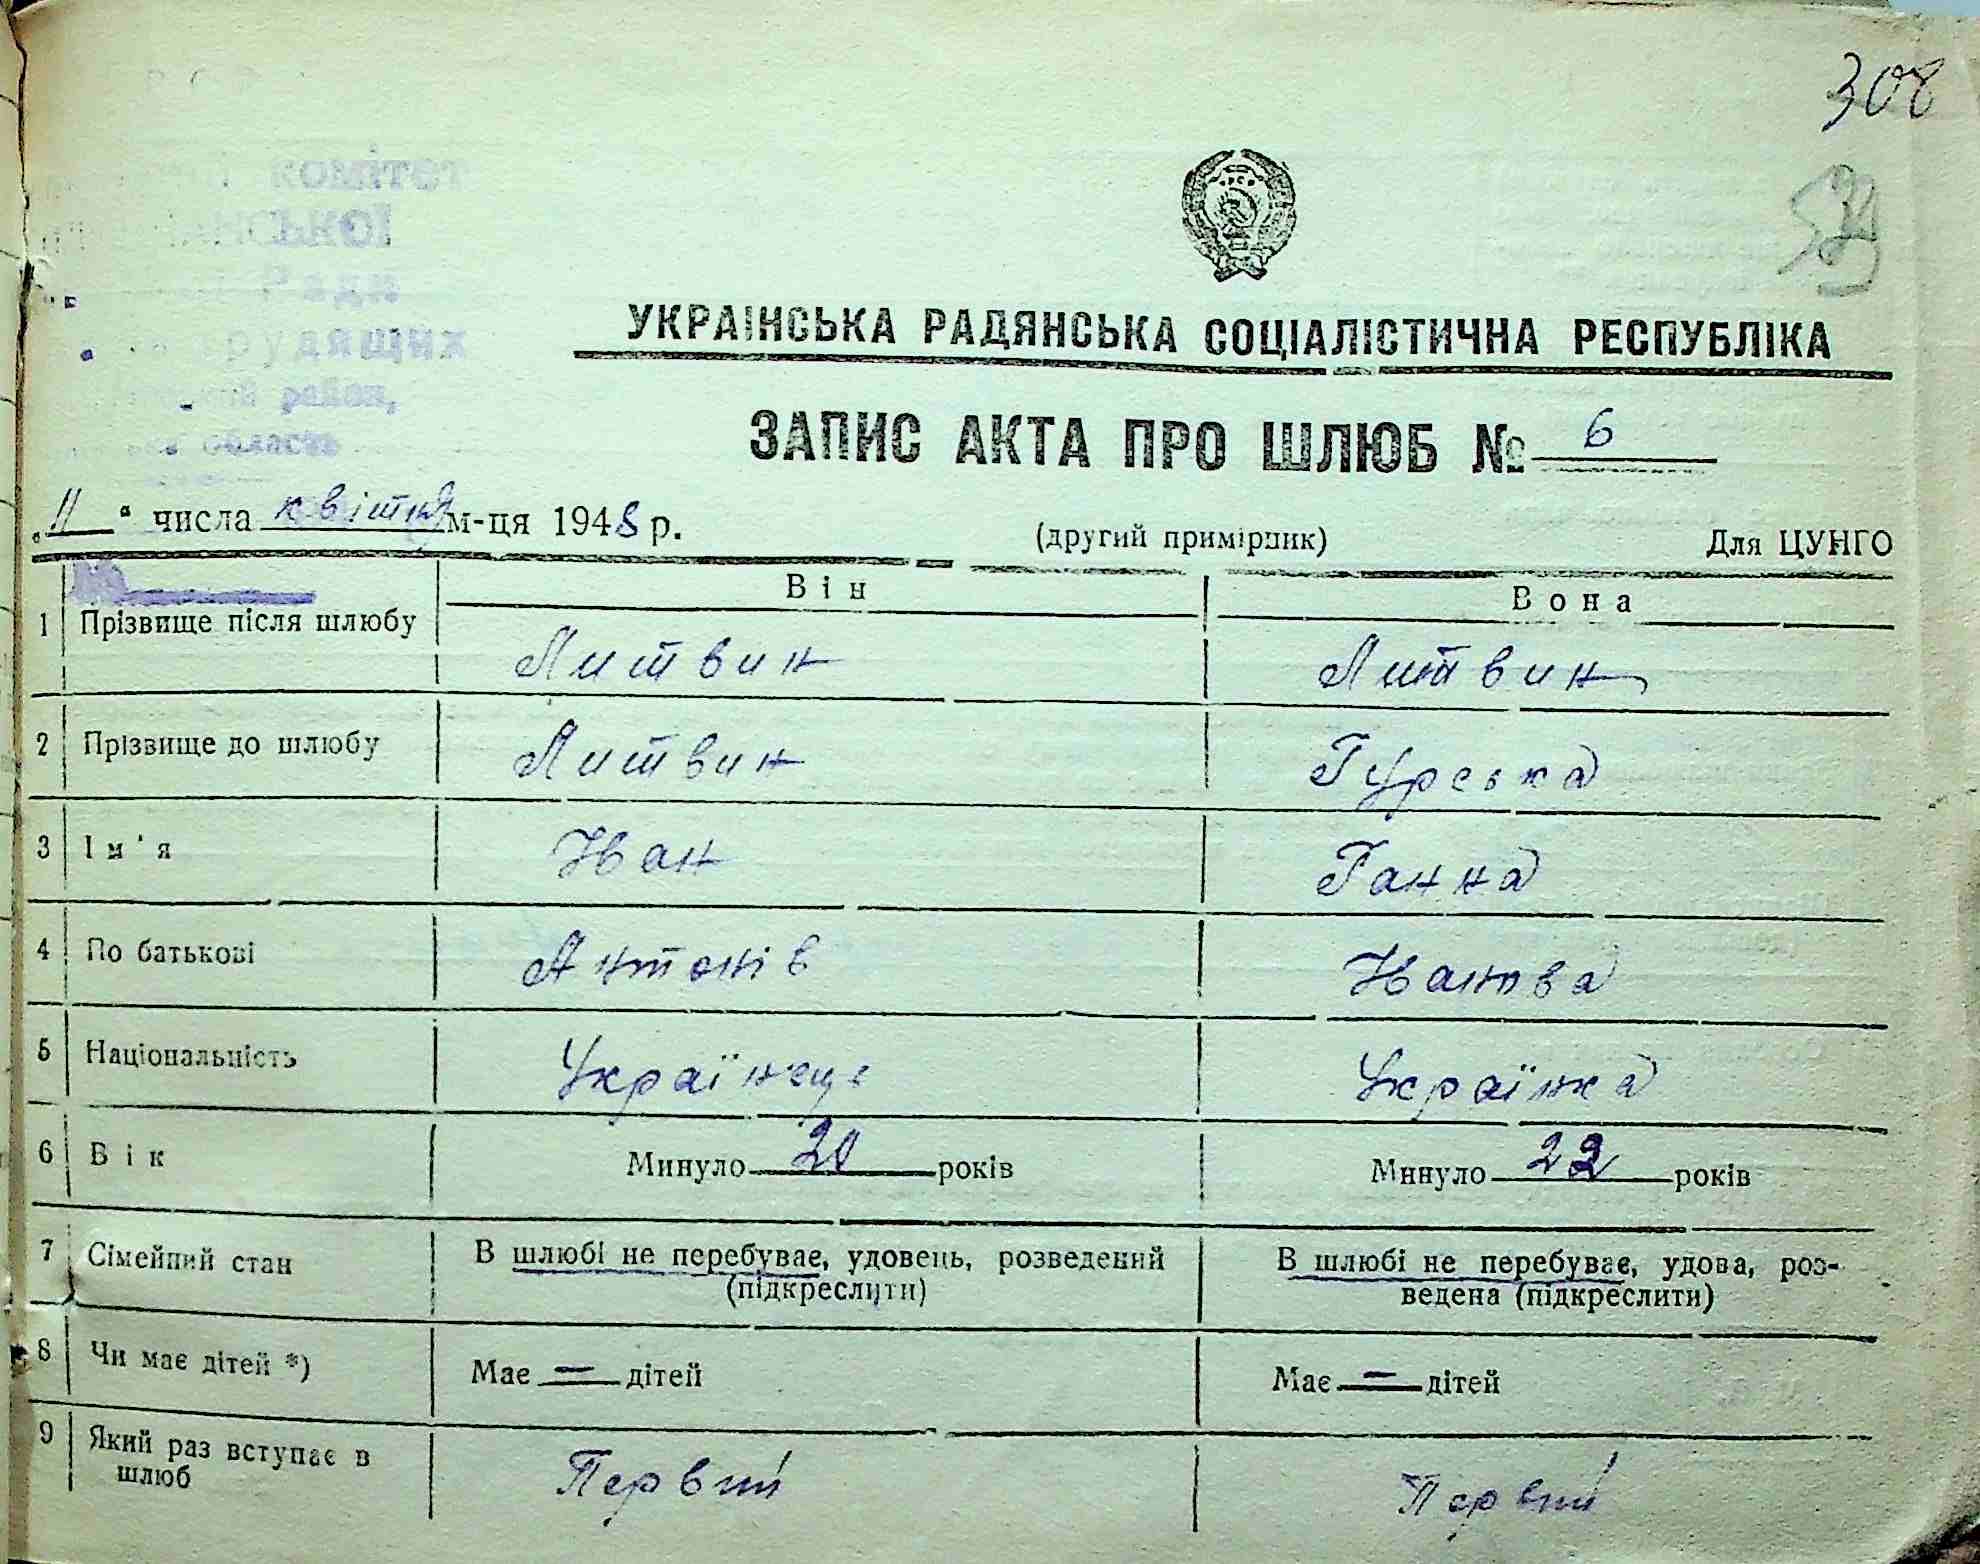 308
комітет
Ради
трудящих
район,
область
УКРАЇНСЬКА РАДЯНСЬКА СОЦІАЛІСТИЧНА РЕСПУБЛІКА
ЗАПИС АКТА ПРО ШЛЮБ № 6
„11“ числа квітня м-ця 1948 р. (другий примірник) Для ЦУНГО
Він Вона
1 Прізвище після шлюбу Литвин Литвин
2 Прізвище до шлюбу Литвин Гурська
3 Ім'я Іван Ганна
4 По батькові Антонів Іванова
5 Національність Українець Українка
6 Вік Минуло 20 років Минуло 22 років
7 Сімейний стан В шлюбі не перебуває, удовець, розведений В шлюбі не перебуває, удова, роз-
(підкреслити) ведена (підкреслити)
8 Чи має дітей *) Має — дітей Має — дітей
9 Який раз вступає в Первий Первий
шлюб